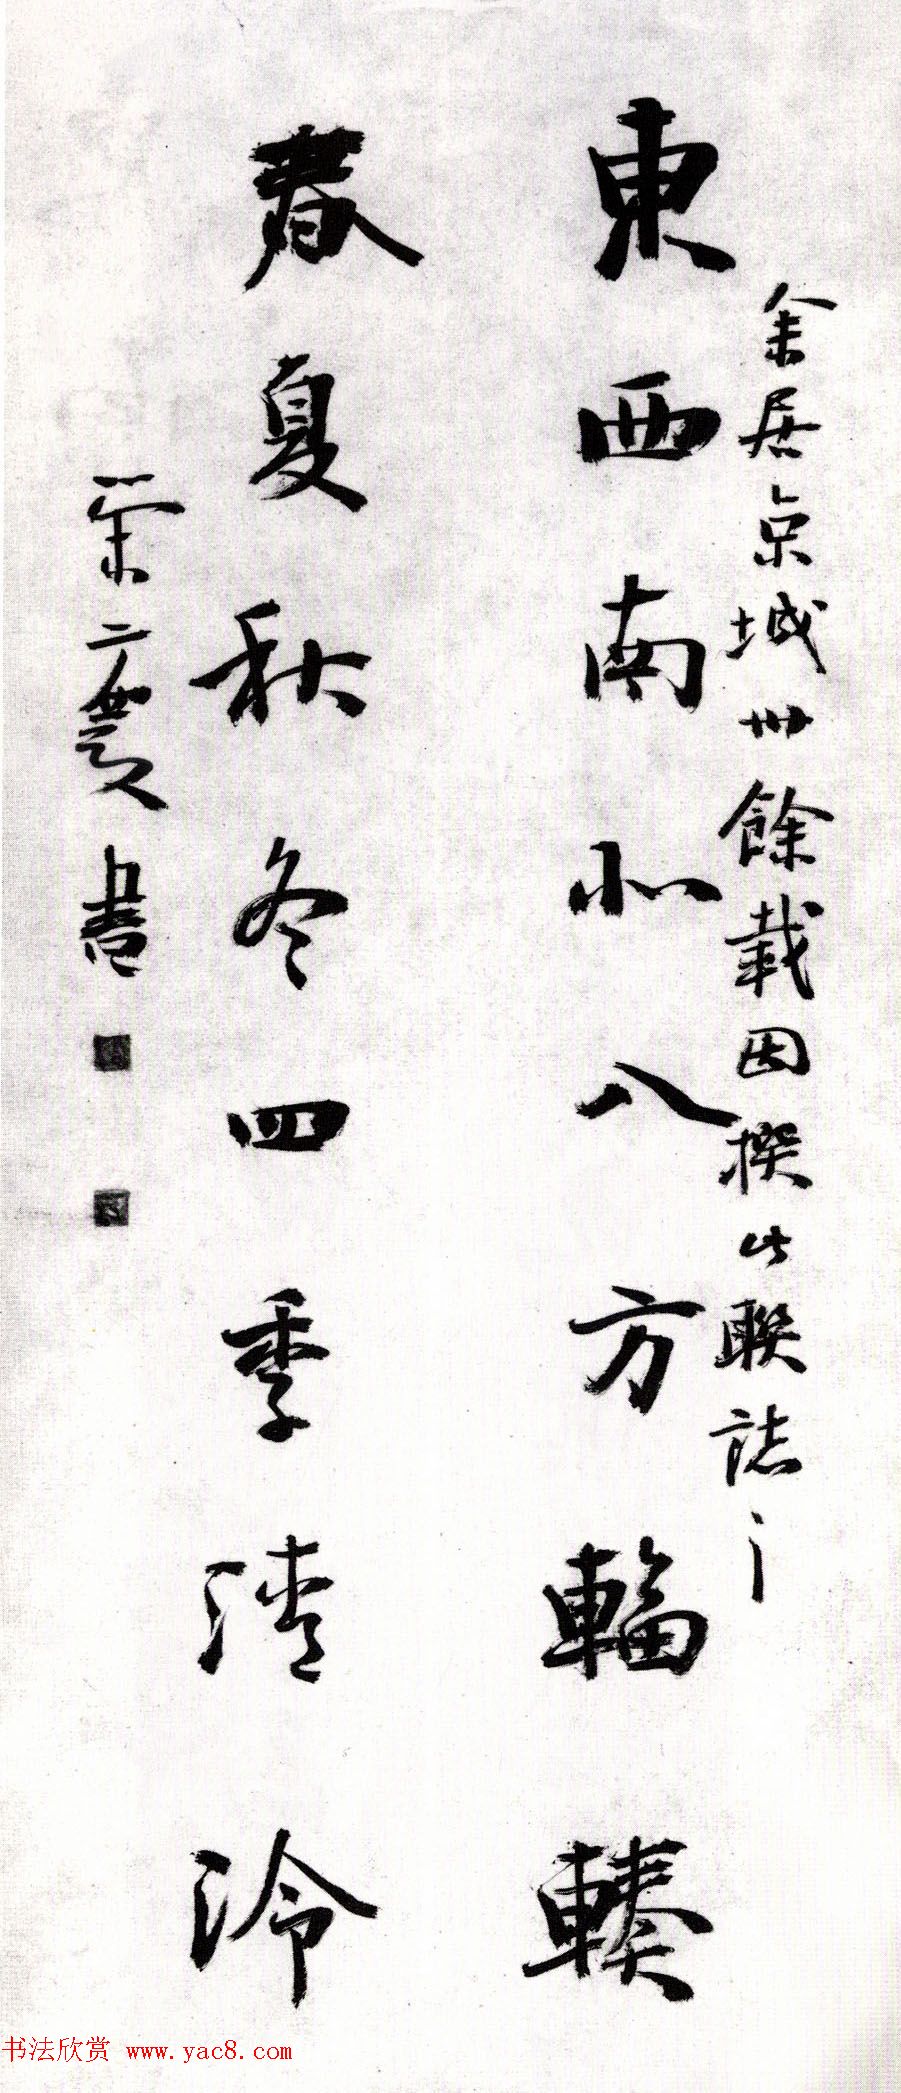 東西南北八方輻輳
余居京城卅餘載因撰此聯誌之
春夏秋冬四季清泠
榮二慶書
书法欣赏 www.yac8.com